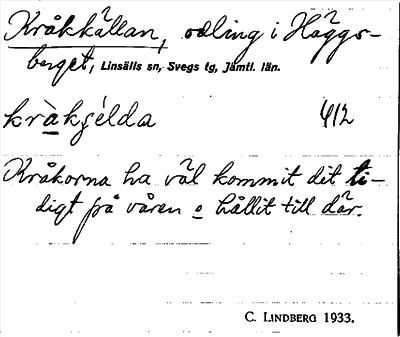 Kråkkällan, odling i Häggs-
berget, Linsälls sn, Svegs tg, Jämtl. län.
kràkjélda 412
Kråkorna ha väl kommit dit ti-
digt på våren o hållit till där.
C. LINDBERG 1933.